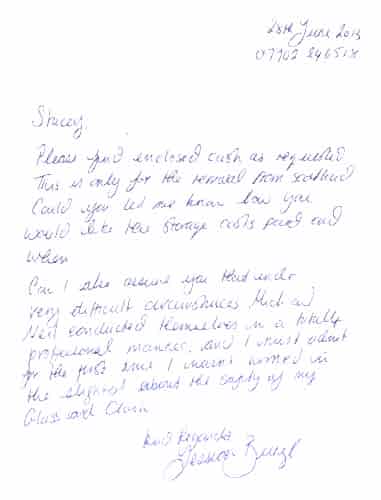 28th June 2013
07702 846518
Stacey,
Please find enclosed cash as requested
This is only for the removal from Scotland
Could you let me know how you
would like the storage costs paid and
when
Can I also assure you that under
very difficult circumstances Mick and
Neil conducted themselves in a totally
professional manner, and I must admit
for the first time I wasn't worried in
the slightest about the safety of my
Glass and China
Kind Regards